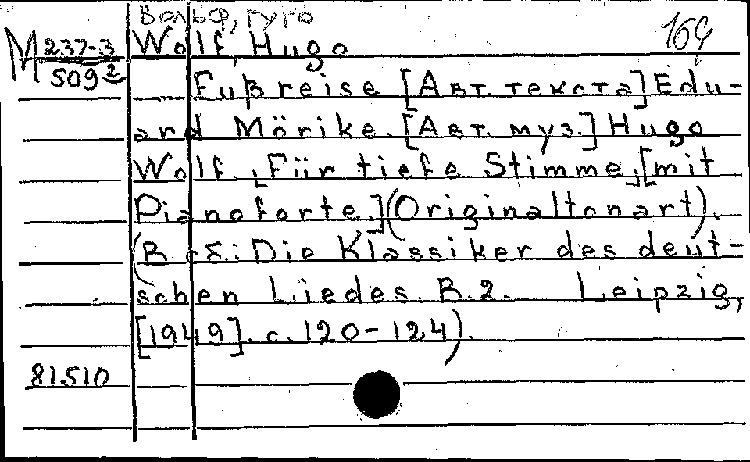 Вольф, Гуго
M 237-3 Wolf, Hugo 164
509²
Fußreise [Авт. текста] Edu-
ard Mörike. [Авт. муз.] Hugo
Wolf. [Für tiefe Stimme,] [mit
Pianoforte.] (Originaltonart).
(В сб.: Die Klassiker des deut-
schen Liedes. B. 2. Leipzig,
[1949]. с. 120-124).
81.510